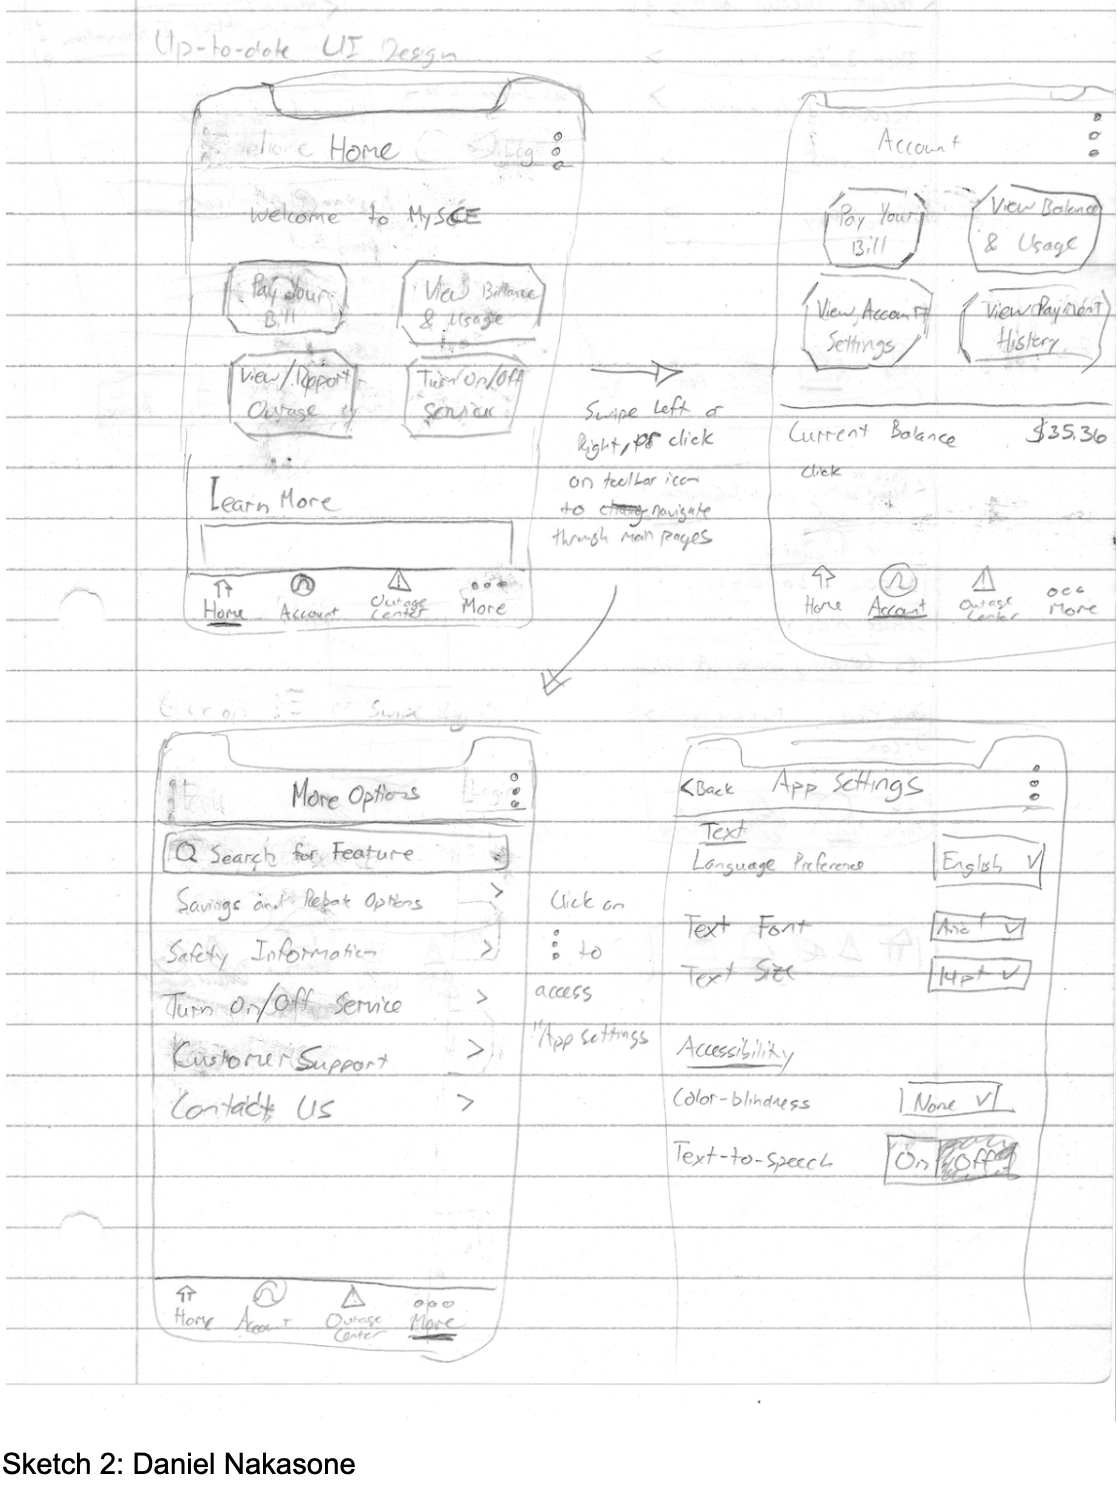 Up-to-date UI Design
Home
Welcome to MySCE
Pay Your
Bill
View Balance
& Usage
View/Report
Outage
Turn On/Off
Service
Learn More
Home
Account
Outage
Center
More
Swipe Left or
Right, or click
on toolbar icon
to navigate
through main pages
Account
Pay Your
Bill
View Balance
& Usage
View Account
Settings
View Payment
History
Current Balance $35.36
Click
Home
Account
Outage
Center
More
More Options
Search for Feature
Savings and Rebate Options >
Safety Information >
Turn On/Off Service >
Customer Support >
Contact Us >
Home
Account
Outage
Center
More
Click on
⋮ to
access
"App settings
<Back App Settings
Text
Language Preference English
Text Font Arial
Text Size 14pt
Accessibility
Color-blindness None
Text-to-speech On Off
Sketch 2: Daniel Nakasone